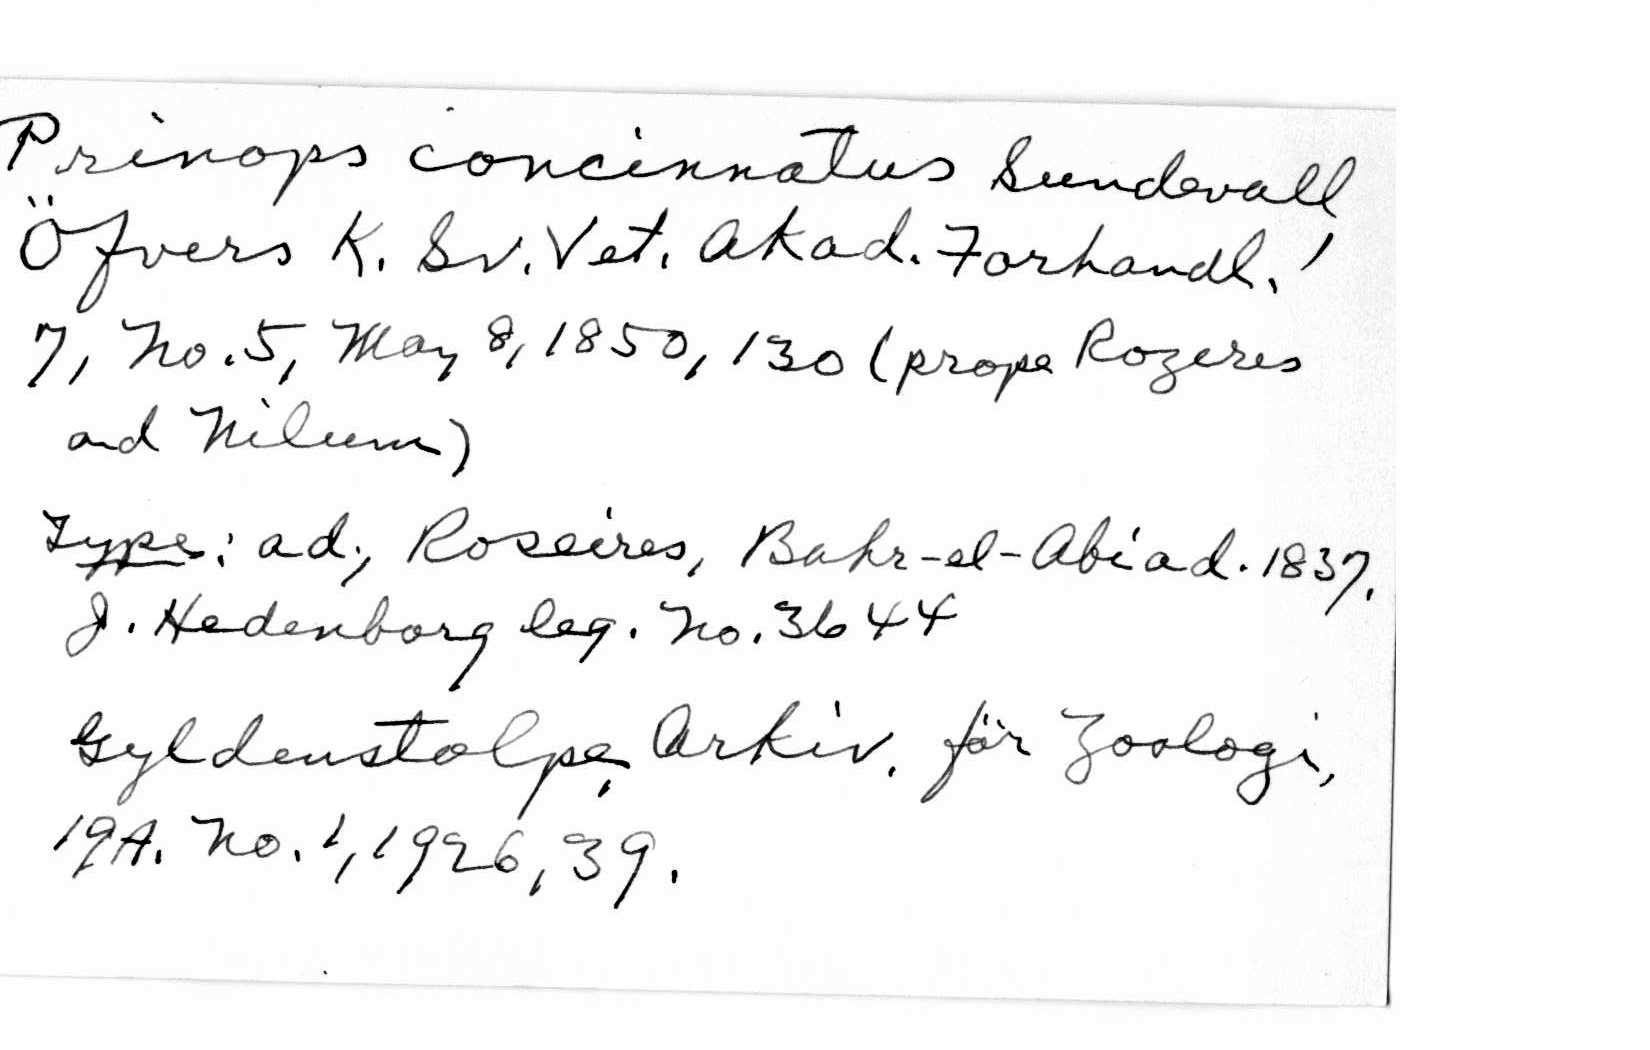 Prinops concinnatus Sundevall,
Öfvers K. Sv. Vet. Akad. Forhandl.
7, No. 5, May 8, 1850, 130 (prope Rozeres
and Nilum)
Type: ad., Roseires, Bahr-el-Abiad. 1837.
J. Hedenborg leg. No. 3644
Gyldenstolpe, Arkiv. för Zoologi,
19A. No. 1, 1926, 39.